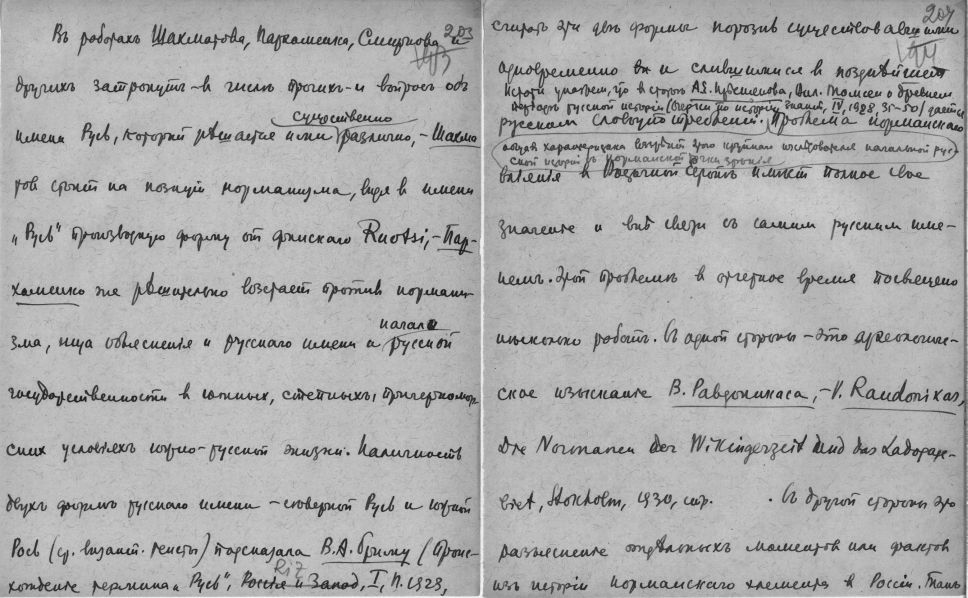 203
193
Въ работахъ Шахматова, Пархоменка, Смирнова и
другихъ затронутъ – въ числѣ прочихъ – и вопросъ объ
существенно
имени Русь, который рѣшается ими различно, – Шахма
товъ стоитъ на позиціи норманизма, видя в имени
„Русь“ производную форму от финскаго Ruotsi, – Пар-
хоменко же рѣшительно возстает против нормани-
начала
зма, ища объясненія и русскаго имени и русской
государственности в южныхъ, степныхъ, причерномор
скихъ условіяхъ южно-русской жизни. Наличность
двухъ формъ русскаго имени – сѣверной Русь и южной
Рось (ср. визант. тексты) подсказала В.А. Бриму (Проис-
хожденіе термина „Русь“, Россія и Запад, I, П. 1923,
204
194
считать эти двѣ формы порознь существовавшими
одновременно и слившимися в позднѣйшем
Кстати укажем, что в статьѣ А.Е. Прѣснякова, Вил. Томсен о древнем
періодѣ русской исторіи (Очерки по исторіи знаній, IV, 1928, 35-50) дается
русском словоупотребленіи. Проблема норманскаго
общая характеристика воззрѣній этого крупнаго изслѣдователя начальной рус-
ской исторіи съ норманской точки зрѣнія
вліянія в Восточной Европѣ имѣет полное свое
значеніе и внѣ связи съ самим русским име-
нем. Этой проблемѣ в отчетное время посвящено
нѣсколько работъ. Съ одной стороны – это археологиче-
ское изысканіе В. Равдоникаса, – V. Raudonikas,
Die Normanen der Wikingerzeit und das Ladogage-
biet, Stokholm, 1930, стр. . Съ другой стороны это
разъясненіе отдѣльныхъ моментов или фактов
изъ исторіи норманскаго элемента в Россіи. Такъ